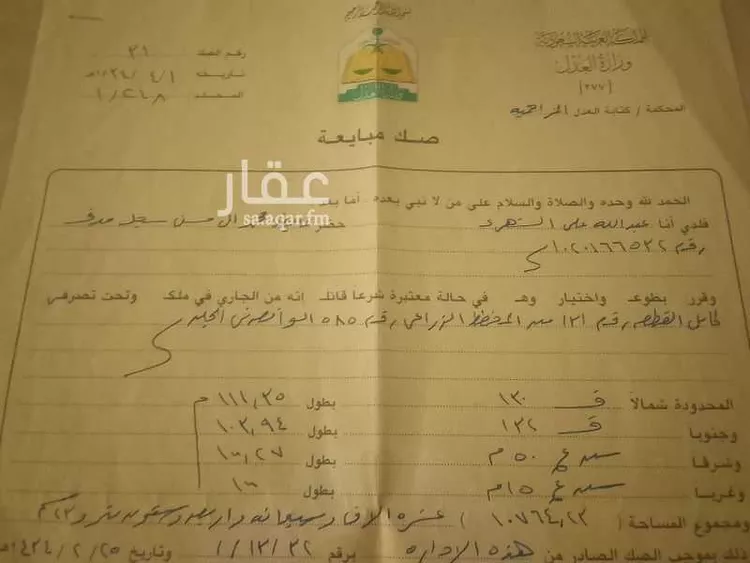 المملكة العربية السعودية
وزارة العدل
(٢٧٧)
المحكمة / كتابة العدل المزاحمية
رقم الصك ٣١
تاريخه ١ / ٤ / ١٤٣٤هـ
المجلد ١/٢٤٨
صك مبايعة
عقار
sa.aqar.fm
الحمد لله وحده والصلاة والسلام على من لا نبي بعده أما بعد
فلدي أنا عبدالله علي الشهري
سجل مدني
رقم ١٠٢٠١٦٦٥٣٢
وقرر بطوعه واختياره وهو في حالة معتبرة شرعا قائلاً إنه من الجاري في ملكي وتحت تصرفي
كامل القطعة رقم ١٣١ من المخطط الزراعي رقم ٥٨٥
المحدودة شمالاً ق ١٣٠ بطول ١١١,٣٥ م
وجنوبا ق ١٣٢ بطول ١٠٣,٩٤
وشرقا شارع ٥٠ م بطول ١٠٠,٢٧
وغربا شارع ١٥ م بطول ١٠٠
ومجموع المساحة (١٠٧٦٤,٢٣) عشرة الاف وسبعمائة واربعة وستون متر و٢٣سم
وذلك بموجب الصك الصادر من هذه الإدارة برقم ١/١٣/٣٢ وتاريخ ٢٥/ ٢ /١٤٣٤هـ